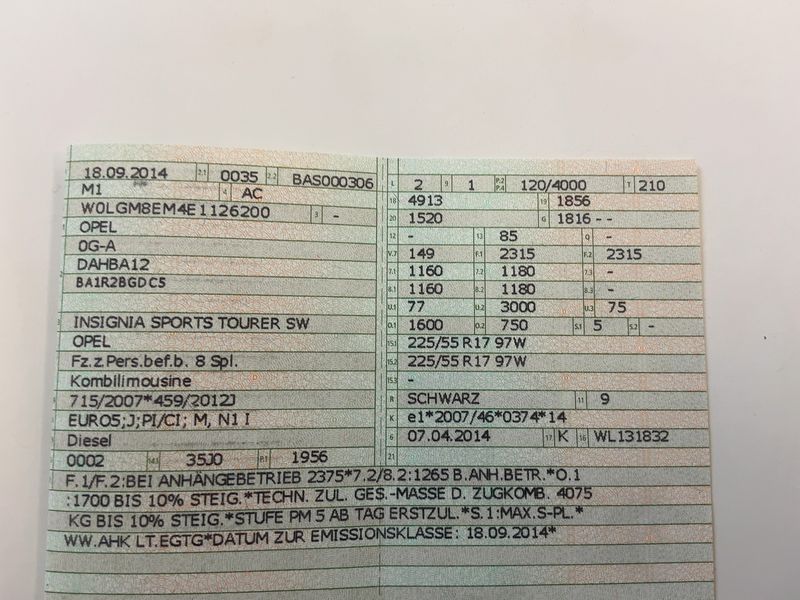 18.09.2014 2.1 0035 2.2 BAS000306
M1 4 AC
W0LGM8EM4E1126200 3 -
OPEL
0G-A
DAHBA12
BA1R2BGDC5
INSIGNIA SPORTS TOURER SW
OPEL
Fz.z.Pers.bef.b. 8 Spl.
Kombilimousine
715/2007*459/2012J
EURO5;J;PI/CI; M, N1 I
Diesel
0002 14.1 35J0 P.1 1956
L 2 9 1 P.2 P.4 120/4000 T 210
18 4913 19 1856
20 1520 G 1816 - -
12 - 13 85 Q -
V.7 149 F.1 2315 F.2 2315
7.1 1160 7.2 1180 7.3 -
8.1 1160 8.2 1180 8.3 -
U.1 77 U.2 3000 U.3 75
O.1 1600 O.2 750 S.1 5 S.2 -
15.1 225/55 R17 97W
15.2 225/55 R17 97W
15.3 -
R SCHWARZ 11 9
K e1*2007/46*0374*14
6 07.04.2014 17 K 16 WL131832
21
F.1/F.2:BEI ANHÄNGEBETRIEB 2375*7.2/8.2:1265 B.ANH.BETR.*O.1
:1700 BIS 10% STEIG.*TECHN. ZUL. GES.-MASSE D. ZUGKOMB. 4075
KG BIS 10% STEIG.*STUFE PM 5 AB TAG ERSTZUL.*S.1:MAX.S-PL.*
WW.AHK LT.EGTG*DATUM ZUR EMISSIONSKLASSE: 18.09.2014*